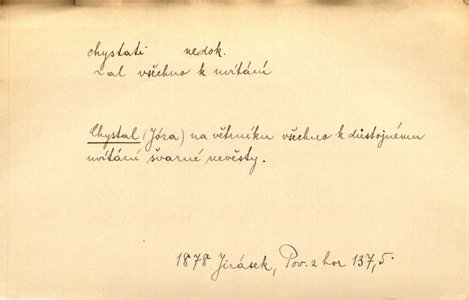 chystati nedok.
-al všechno k uvítání
Chystal (Józa) na větrníku všechno k důstojnému
uvítání švarné nevěsty.
1878 Jirásek, Pov. z hor 137,5.